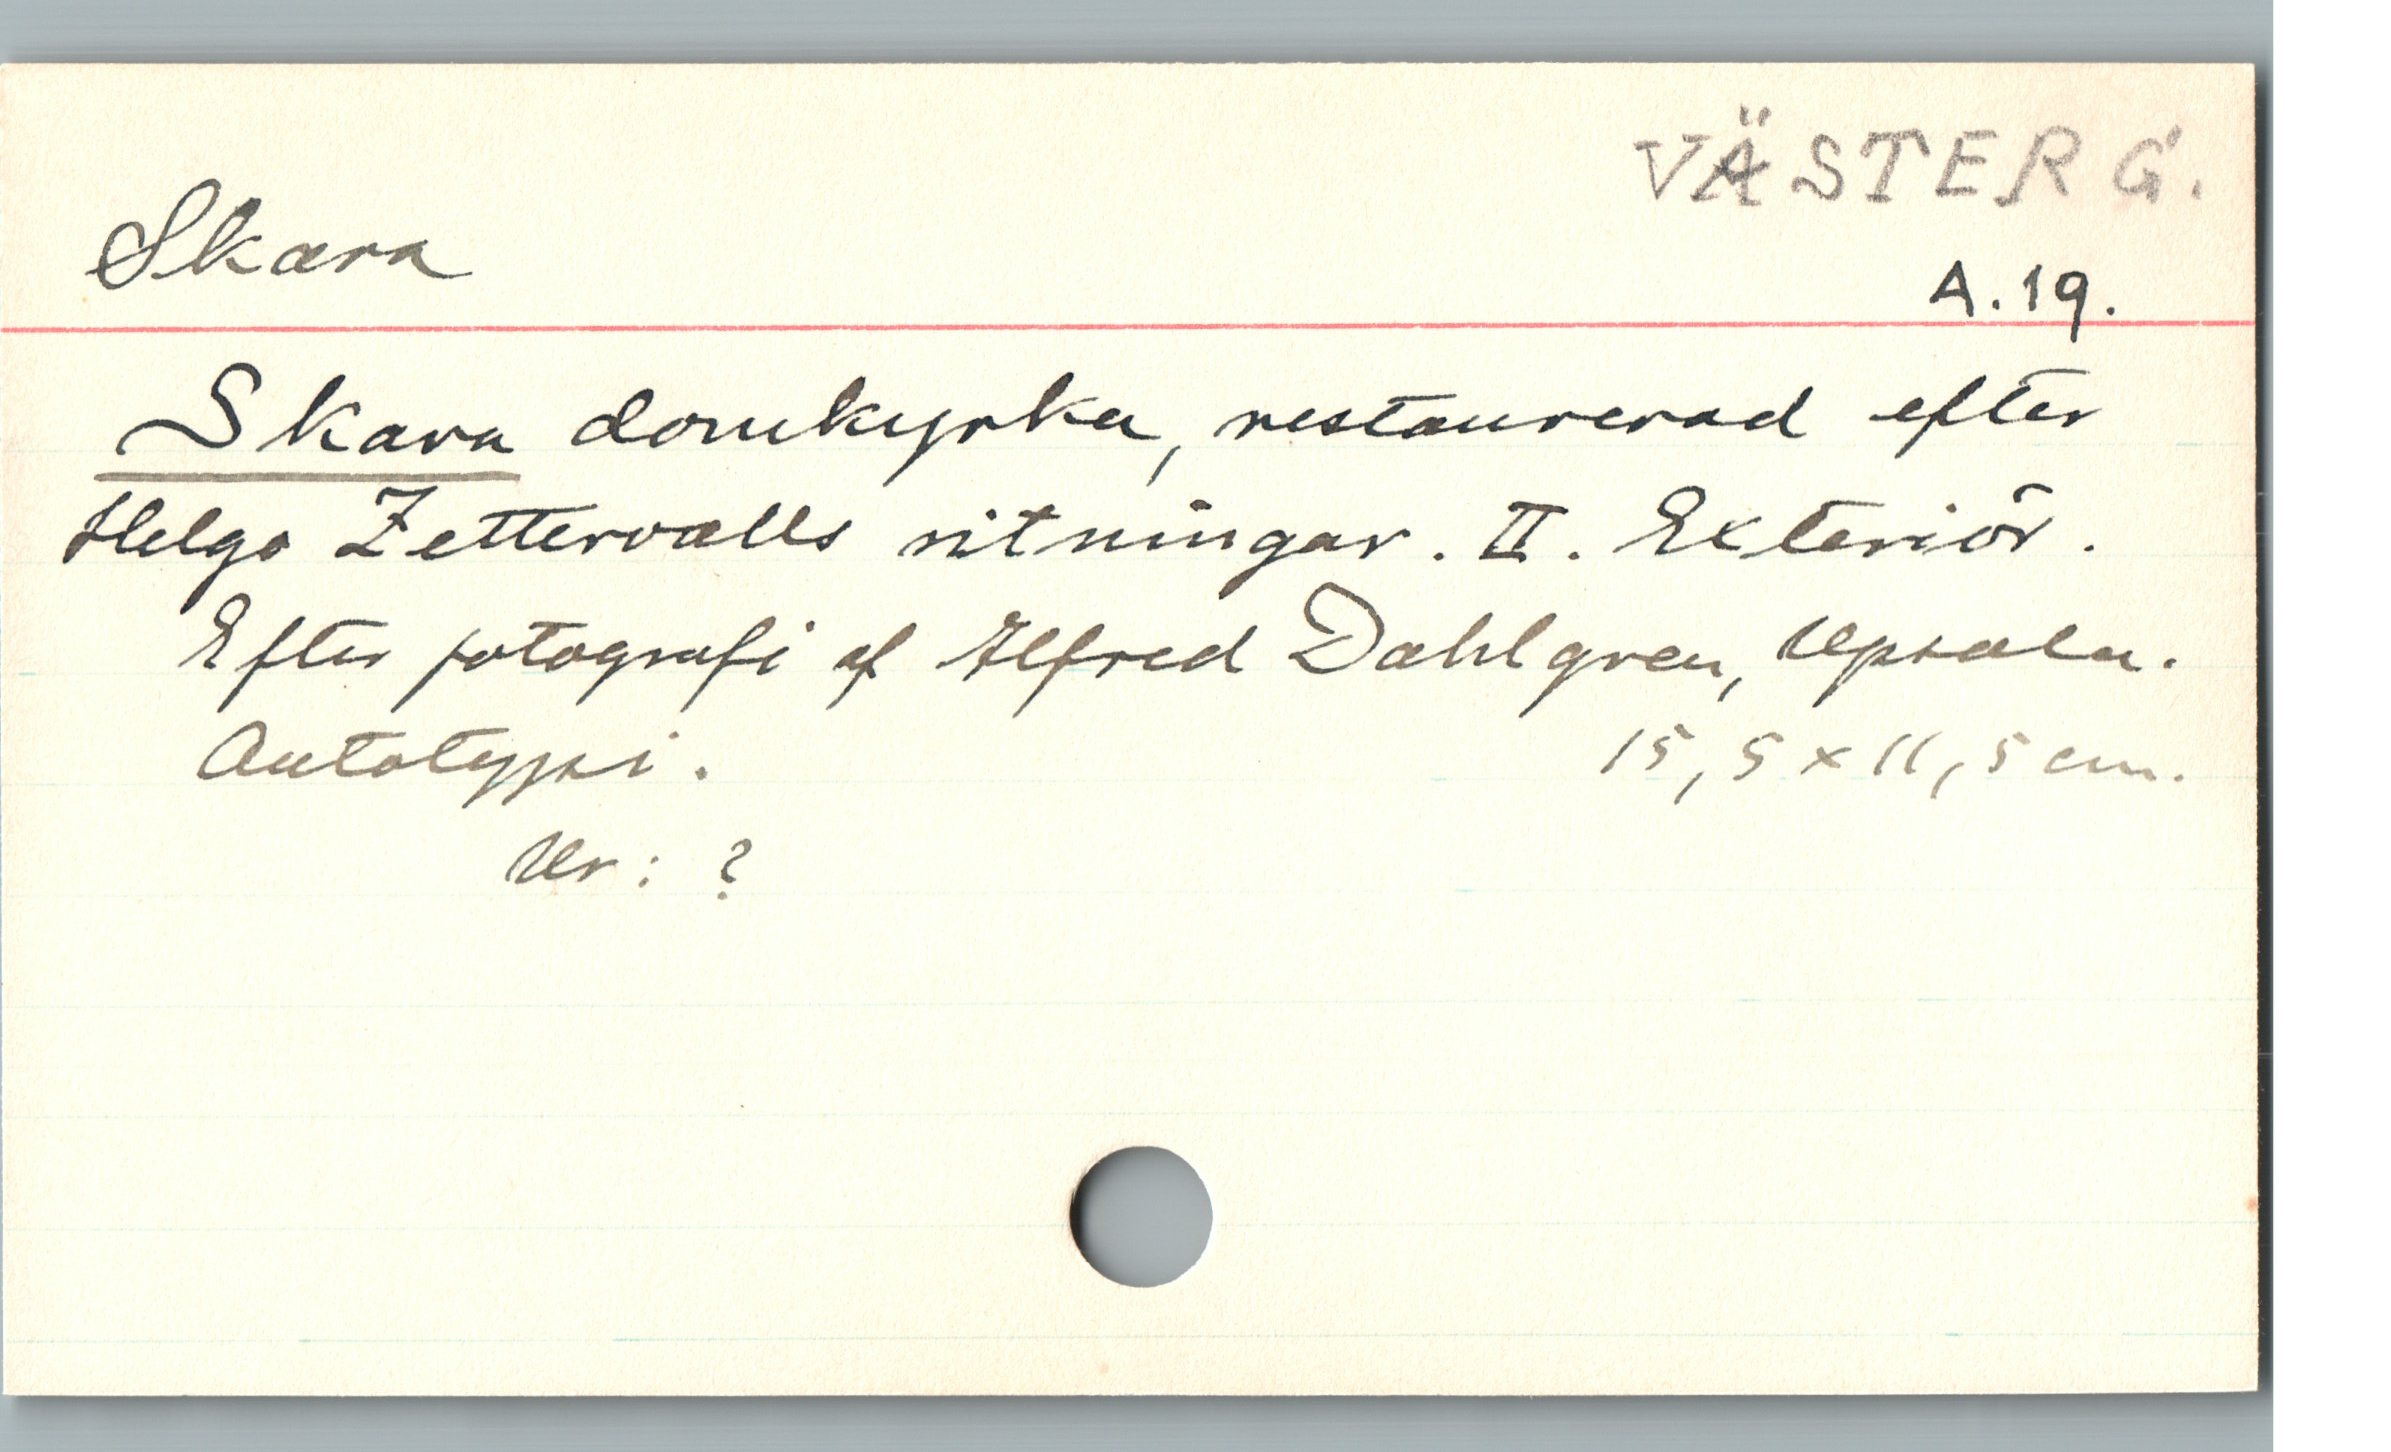 VÄSTERG.
Skara
A.19.
Skara domkyrka, restaurerad efter
Helgo Zettervalls ritningar. II. Exteriör.
Efter fotografi af Alfred Dahlgren, Upsala.
Autotypi. 15,5 x 11,5 cm.
Ur: ?